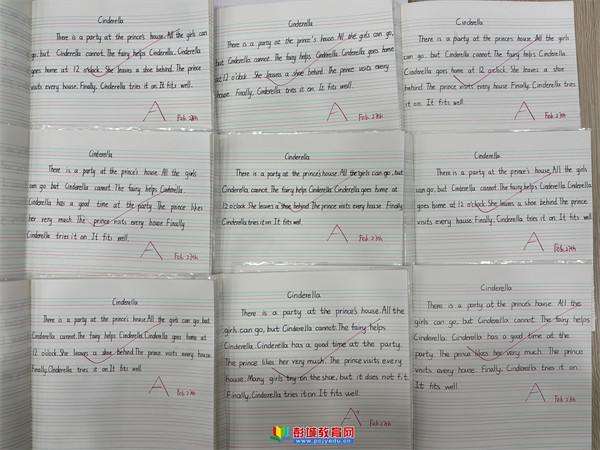 Cinderella
There is a party at the prince's house. All the girls can
go, but Cinderella cannot. The fairy helps Cinderella. Cinderella
goes home at 12 o'clock. She leaves a shoe behind. The prince
visits every house. Finally, Cinderella tries it on. It fits well.
A
Feb. 27th
Cinderella
There is a party at the prince's house. All the girls can go,
but Cinderella cannot. The fairy helps Cinderella. Cinderella goes home
at 12 o'clock. She leaves a shoe behind. The prince visits every
house. Finally, Cinderella tries it on. It fits well.
A
Feb. 27th
Cinderella
There is a party at the princes house. All the girls
can go, but Cinderella cannot. The fairy helps Cinderella.
Cinderella goes home at 12 o'clock. She leaves a shoe
behind. The prince visits every house. Finally, Cinderella tries
it on. It fits well.
A
Feb. 27th
Cinderella
There is a party at the prince's house. All the girls
can go but Cinderella cannot. The fairy helps Cinderella.
Cinderella has a good time at the party. The prince likes
her very much. The prince visits every house. Finally
Cinderella tries it on. It fits well.
A
Feb. 27th
Cinderella
There is a party at the prince's house. All the girls can go, but
Cinderella cannot. The fairy helps Cinderella. Cinderella goes home at
12 o'clock. She leaves a shoe behind. The prince visits every house. Finally,
Cinderella tries it on. It fits well.
A
Feb. 27th
Cinderella
There is a party at the prince's house. All the girls
can go, but Cinderella cannot. The fairy helps Cinderella. Cinderella
goes home at 12 o'clock. She leaves a shoe behind. The prince
visits every house. Finally, Cinderella tries it on. It fits well.
A
Feb. 27th
Cinderella
There is a party at the prince's house. All the girls can go, but
Cinderella cannot. The fairy helps Cinderella. Cinderella goes home at
12 o'clock. She leaves a shoe behind. The prince visits every house.
Finally, Cinderella tries it on. It fits well.
A
Feb. 27th
Cinderella
There is a party at the prince's house. All the
girls can go, but Cinderella cannot. The fairy helps
Cinderella. Cinderella has a good time at the party.
The prince likes her very much. The prince visits every
house. Many girls try on the shoe, but it does not fit.
Finally, Cinderella tries it on. It fits well.
A
Feb. 27th
Cinderella
There is a party at the prince's house. All the
girls can go, but Cinderella cannot. The fairy helps
Cinderella. Cinderella has a good time at the
party. The prince likes her very much. The prince
visits every house. Finally, Cinderella tries it on.
It fits well.
A
Feb. 27th
彭城教育网
www.pcjyedu.cn